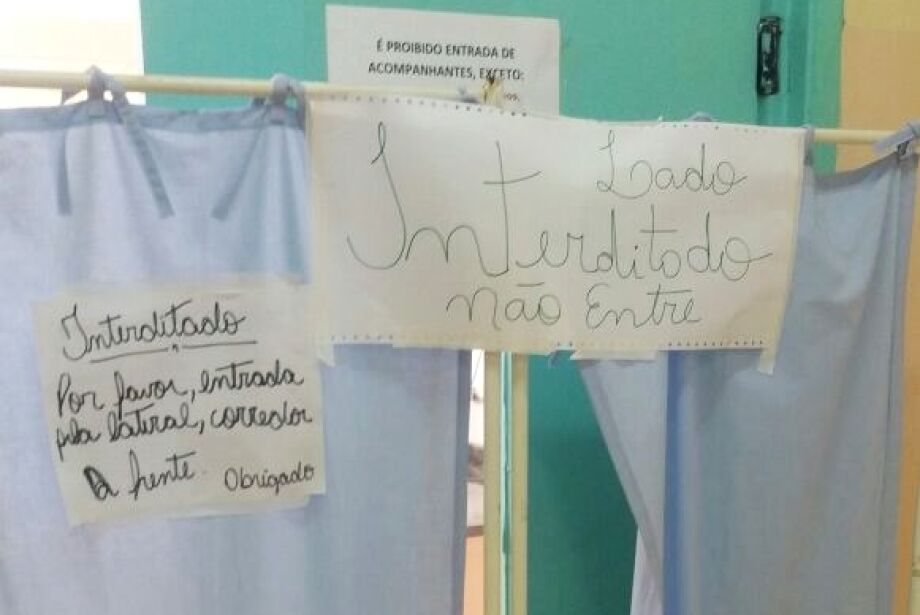 É PROIBIDO ENTRADA DE
ACOMPANHANTES, EXCETO:
Lado
Interditodo
não Entre
Interditado
Por favor, entrada
pela lateral, corredor
A frente. Obrigado